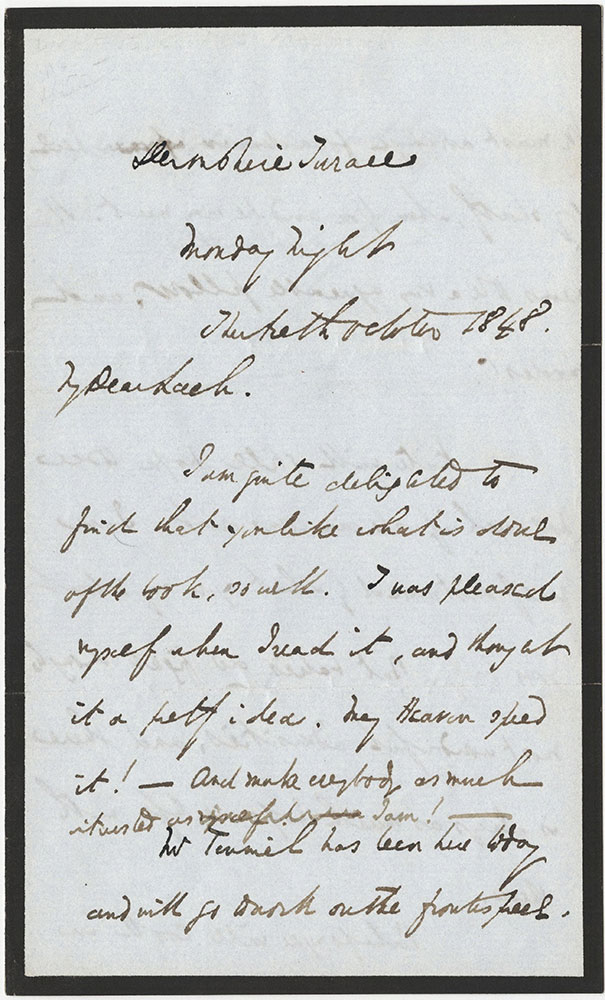 Devonshire Terrace
Monday Night
Thirtieth October 1848.
My Dear Leech.
I am quite delighted to
find that you like what is done
of the book, so well. I was pleased
myself when I read it, and thought
it a pretty idea. May Heaven speed
it! — And make everybody as much
interested as myself. I am! —
Mr Tenniel has been here today
and will go to work on the frontispiece.